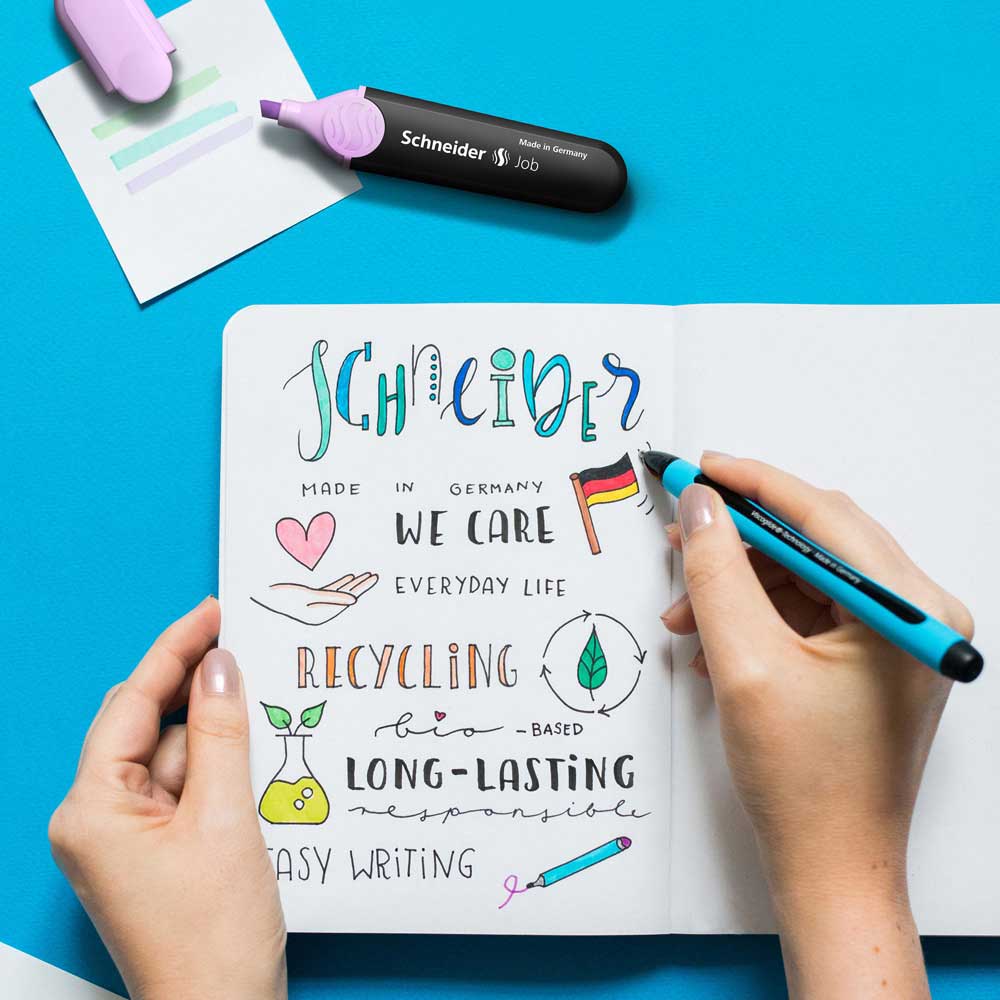 Made in Germany
Schneider Job
SCHNEIDER
MADE IN GERMANY
WE CARE
EVERYDAY LIFE
Viscoglide® Technology Made in Germany
RECYCLING
bio-BASED
LONG-LASTING
responsible
EASY WRITING